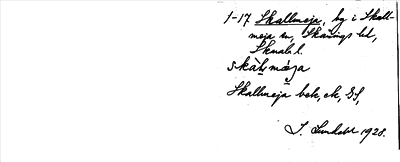 1-17 Skallmeja, by i Skall-
meja sn, Skånings hd,
Skarab. l.
skàlmǝja
Skallmeja bek, ek, GS,
I. Lundahl 1928.